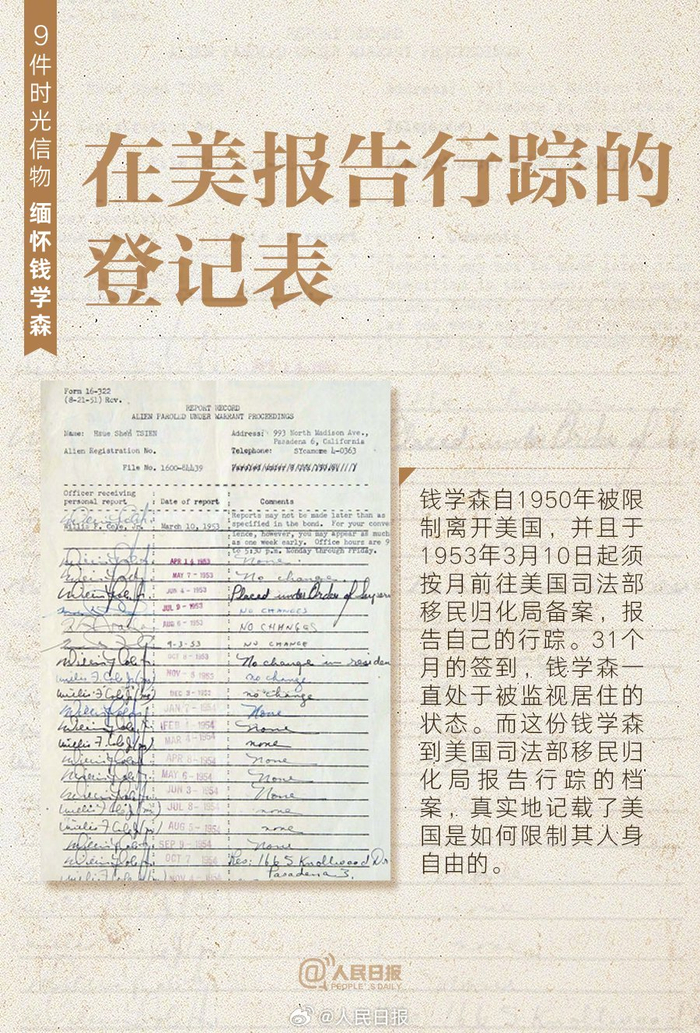 9件时光信物 缅怀钱学森
在美报告行踪的
登记表
Form 16-322
(8-21-51) Rev.
REPORT RECORD
ALIEN PAROLED UNDER WARRANT PROCEEDINGS
Name: Hsue Shen TSIEN
Address: 993 North Madison Ave.,
Pasadena 6, California
Alien Registration No.
Telephone: SYcamore 4-0363
File No. 1600-84439
Officer receiving
personal report
Date of report
Comments
Reports may not be made later than as
specified in the bond. For your conve
ience, however, you may appear as much
as one week early. Office hours are 9
to 5:30 p.m. Monday through Friday.
March 10, 1953
APR 1953 None
MAY 7 - 1953 No change
JUN 4 - 1953 Placed under Order of Supervi
JUL 9 - 1953 NO CHANGES
AUG 6 - 1953 NO CHANGES
9-3-53 NO CHANGE
OCT 8 - 1953 No change in residen
NOV 5 - 1953 no change
DEC 1953 no change
JAN 7 - 1954 None
FEB 4 - 1954 None
MAR 4 - 1954 none
APR 8 - 1954 None
MAY 6 - 1954 None
JUN 3 - 1954 None
JUL 8 - 1954 none
AUG 5 - 1954 none
SEP 9 - 1954 None
OCT 7 1954 Res: 166 S Knollwood Dr
Pasadena 3.
NOV 4 - 1954
钱学森自1950年被限
制离开美国，并且于
1953年3月10日起须
按月前往美国司法部
移民归化局备案，报
告自己的行踪。31个
月的签到，钱学森一
直处于被监视居住的
状态。而这份钱学森
到美国司法部移民归
化局报告行踪的档
案，真实地记载了美
国是如何限制其人身
自由的。
@人民日报
PEOPLE'S DAILY
@人民日报